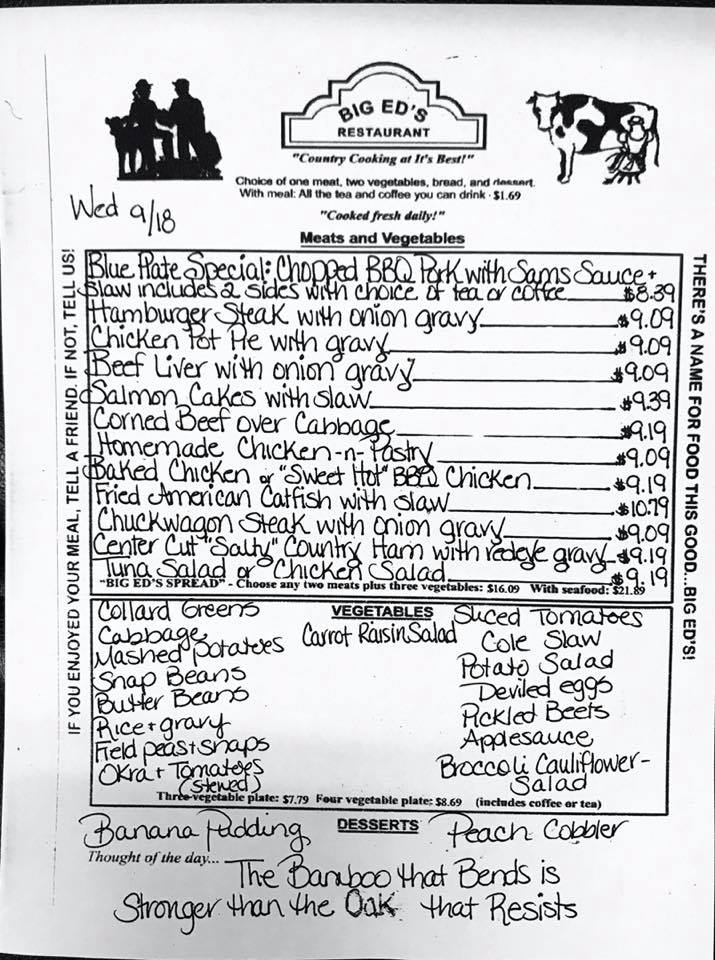 BIG ED'S
RESTAURANT
"Country Cooking at It's Best!"
Choice of one meat, two vegetables, bread, and dessert.
With meal: All the tea and coffee you can drink - $1.69
Wed 9/18
"Cooked fresh daily!"
Meats and Vegetables
IF YOU ENJOYED YOUR MEAL, TELL A FRIEND. IF NOT, TELL US!
THERE'S A NAME FOR FOOD THIS GOOD...BIG ED'S!
Blue Plate Special: Chopped BBQ Pork with Sams Sauce +
Slaw includes 2 sides with choice of tea or coffee $8.39
Hamburger Steak with onion gravy $9.09
Chicken Pot Pie with gravy $9.09
Beef Liver with onion gravy $9.09
Salmon Cakes with slaw $9.39
Corned Beef over Cabbage $9.19
Homemade Chicken-n-Pastry $9.09
Baked Chicken or "Sweet Hot" BBQ Chicken $9.19
Fried American Catfish with slaw $10.79
Chuckwagon Steak with onion gravy $9.09
Center Cut "Salty" Country Ham with redeye gravy $9.19
Tuna Salad or Chicken Salad $9.19
"BIG ED'S SPREAD" - Choose any two meats plus three vegetables: $16.09 With seafood: $21.89
VEGETABLES
Collard Greens
Cabbage
Mashed potatoes
Snap Beans
Butter Beans
Rice + gravy
Field peas + snaps
Okra + Tomatoes
(stewed)
Carrot Raisin Salad
Sliced Tomatoes
Cole Slaw
Potato Salad
Deviled eggs
Pickled Beets
Applesauce
Broccoli Cauliflower-
Salad
Three-vegetable plate: $7.79 Four vegetable plate: $8.69 (includes coffee or tea)
DESSERTS
Banana Pudding Peach Cobbler
Thought of the day... The Bamboo that Bends is
Stronger than the Oak that Resists